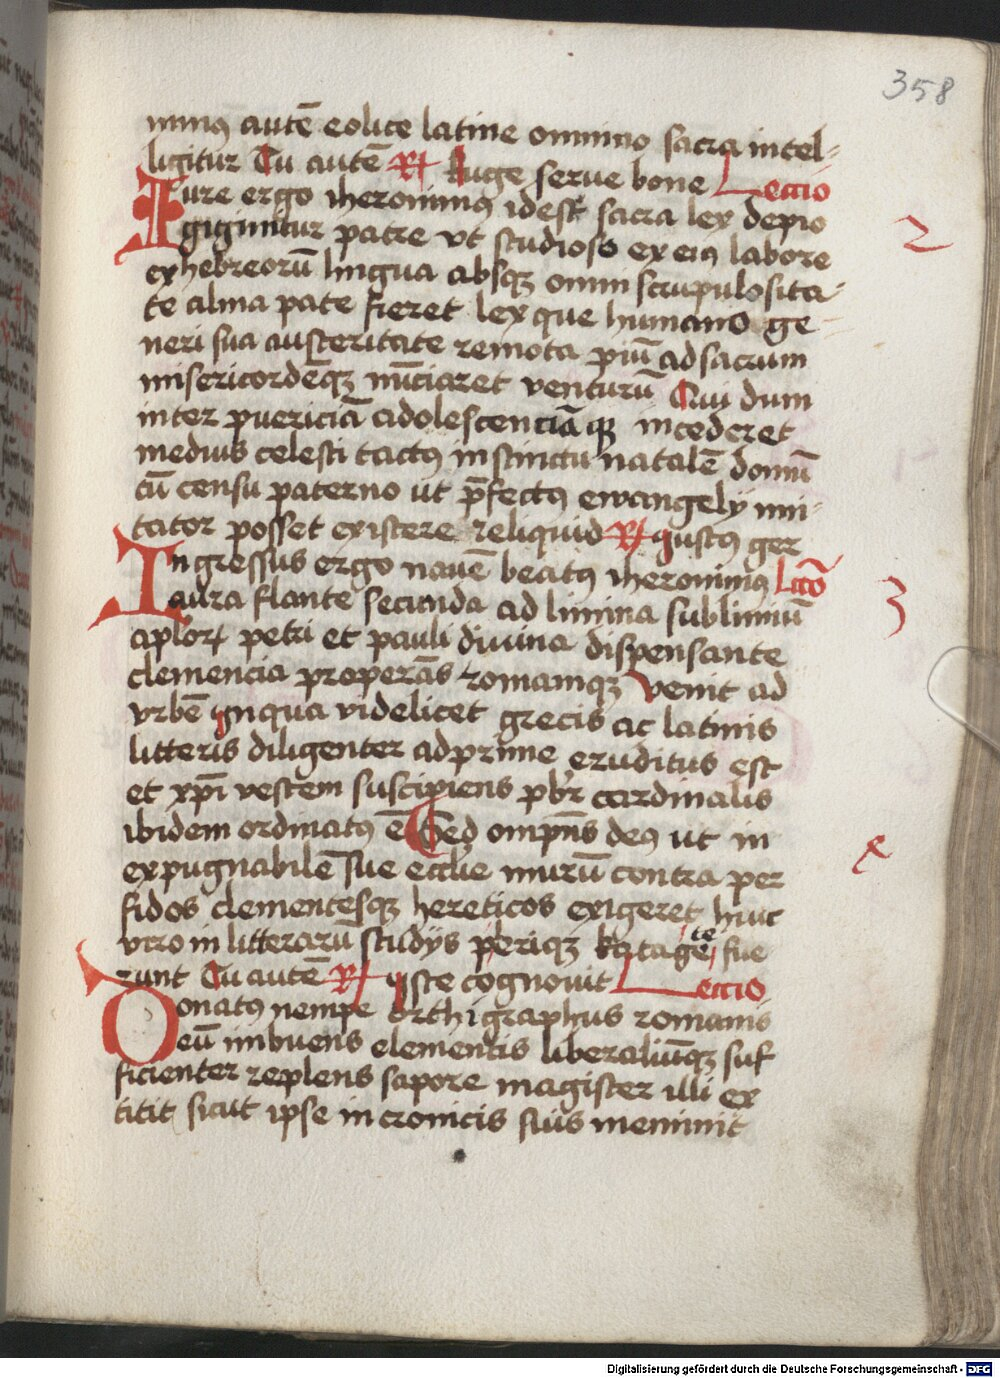 358
nimus autē eolice latine omnino sacra intel-
ligitur Tu autē ꝶ Euge serue bone Leccio
Iure ergo iheronimus idest sacra lex de pio 2
gignitur patre vt studioso ex eius labore
ex hebreorū lingua absqꝫ omni scrupulosita-
te alma pate fieret lex que humano ge-
neri sua austeritate remota piū ad sacrum
misericordēqꝫ nūciaret venturū Cui dum
inter puericiā adolescenciāqꝫ incederet
medius celesti tactus instinctu natalē domū
cū censu paterno ut p̄fectus ewangelij imi-
tator posset existere reliquid ꝶ iustus ger
Ingressus ergo nauē beatus iheronimus Lcc̄o
aura flante secunda ad limina sublimiū 3
aplorꝝ petri et pauli diuina dispensante
clemencia properās romamqꝫ venit ad
vrbē inqua videlicet grecis ac latinis
litteris diligenter adprime eruditus est
et xpī vestem suscipiens pbr̄ cardinalis
ibidem ordinatus ē Sed ompn̄s deus ut in
expugnabilē sue ecclie murū contra per
fidos clementesqꝫ hereticos exigeret huic
viro in litterarū studijs periqꝫ kartagēte fue
runt Tu autē ꝶ iste cognouit Leccio
Donatus nempe orthigraphus romanis
eū imbuens elementis liberaliūqꝫ suf
ficienter replens sapore magister illi ex
titit sicut ipse in cronicis suis meminit
Digitalisierung gefördert durch die Deutsche Forschungsgemeinschaft - DFG